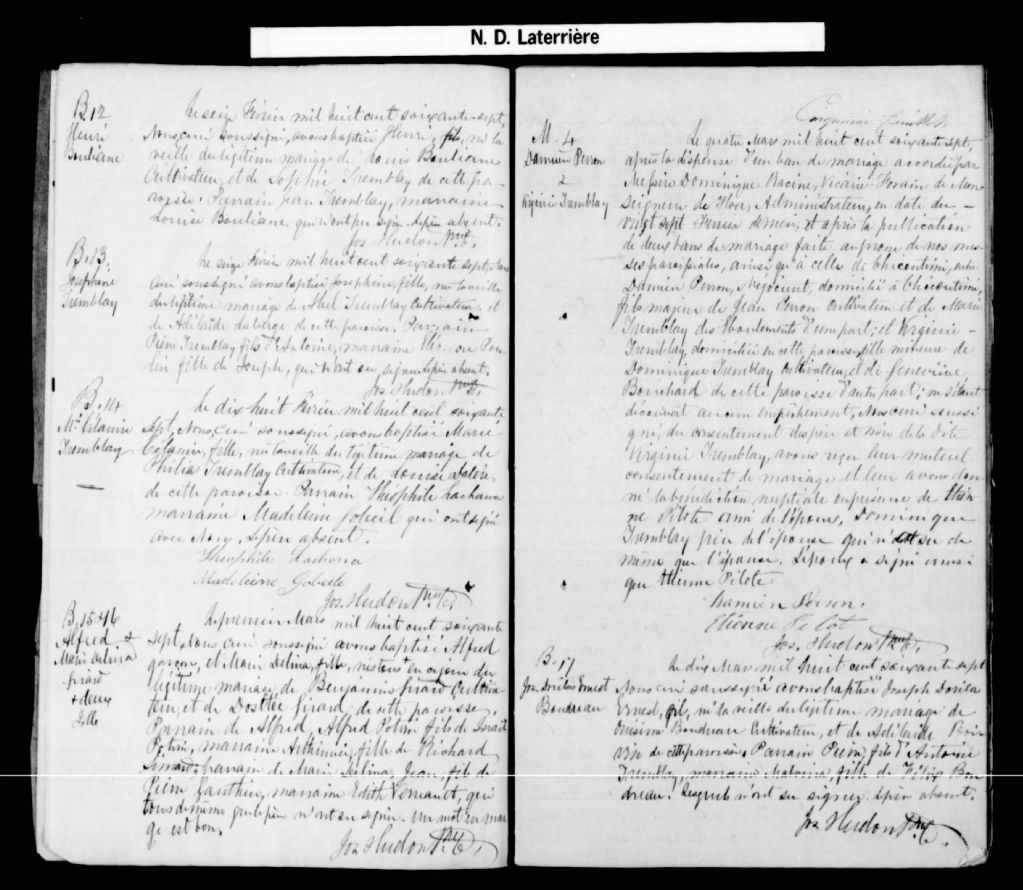 N. D. Laterrière
B. 12
Henri
Bouliane
Le seize Février mil huit cent soixante-sept,
Nous, curé soussigné, avons baptisé Henri, fils, né la
veille du légitime mariage de Louis Bouliane
Cultivateur, et de Sophie Tremblay de cette pa-
roisse. Parrain Jean Tremblay, marraine
Louise Bouliane qui n'ont pu signer. Le père absent.
Jos Hudon Ptre
B. 13.
Josephine
Tremblay
Le seize Février mil huit cent soixante sept, Nous
curé soussigné avons baptisé Josephine, fille, née la veille
du légitime mariage de Abel Tremblay Cultivateur, et
de Adélaïde Auberge de cette paroisse. Parrain
Pierre Tremblay fils d'Antoine, marraine
fille de Joseph, qui n'ont su signer. Le père absent.
Jos Hudon Ptre
B. 14
Tremblay
Le dix huit Février mil huit cent soixante
sept, Nous, curé soussigné, avons baptisé Marie
fille, née la veille du légitime mariage de
Tremblay Cultivateur, et de Louise
de cette paroisse. Parrain Théophile Lachance
marraine Madeleine Gobeil qui ont signé
avec Nous. Le père absent.
Théophile Lachance
Madeleine Gobeil
Jos. Hudon Ptre
B. 15 & 16
Alfred &
Marie Delima
Girard
Le premier Mars mil huit cent soixante
sept, Nous curé soussigné avons baptisé Alfred
garçon, et Marie Delima, fille, nés tous
légitime mariage de Benjamin Girard Cultiva-
teur, et de Girard, de cette paroisse.
Parrain de Alfred, Alfred Potvin fils de Israël
Potvin, marraine fille de Richard
Simard; parrain de Marie Delima, Jean, fils de
Pierre Gauthier, marraine Edith qui
tous de même que le père n'ont su signer. Un mot en mar-
ge est bon.
Jos Hudon Ptre
M. 4
Damien Perron
&
Virginie Tremblay
Le quatre Mars mil huit cent soixante sept,
après la dispense d'un ban de mariage accordée par
Messire Dominique Racine, Vicaire Forain de Mon
seigneur de Administrateur, en date du
vingt sept Février dernier, et après la publication
de deux bans de mariage faite au prône de nos mes-
ses paroissiales, ainsi qu'à celle de Chicoutimi, entre
Damien Perron, Négociant, domicilié à Chicoutimi,
fils majeur de Jean Perron Cultivateur et de Marie
Tremblay des Eboulements d'une part; et Virginie
Tremblay, domiciliée en cette paroisse, fille mineure de
Dominique Tremblay Cultivateur, et de Geneviève
Bouchard de cette paroisse d'autre part; ne s'étant
découvert aucun empêchement, Nous curé soussi
gné, du consentement des père et mère de la dite
Virginie Tremblay, avons reçu leur mutuel
consentement de mariage et leur avons don
né la bénédiction nuptiale en présence de Etien
ne Pilote ami de l'époux, Dominique
Tremblay père de l'épouse qui n'a su de
même que l'épouse. L'époux a signé ainsi
que Etienne Pilote
Damien Perron.
Etienne Pelot
Jos. Hudon Ptre
B. 17
Jos. Dorilas Ernest
Boudreau
Le dix Mars mil huit cent soixante sept
Nous curé soussigné avons baptisé Joseph Dorilas
Ernest, fils, né la veille du légitime mariage de
Onésime Boudreau Cultivateur, et de Adélaïde
de cette paroisse. Parrain Pierre, fils d'Antoine
Tremblay, marraine fille de Félix Bou
dreau. Lesquels n'ont su signer. Le père absent.
Jos Hudon Ptre